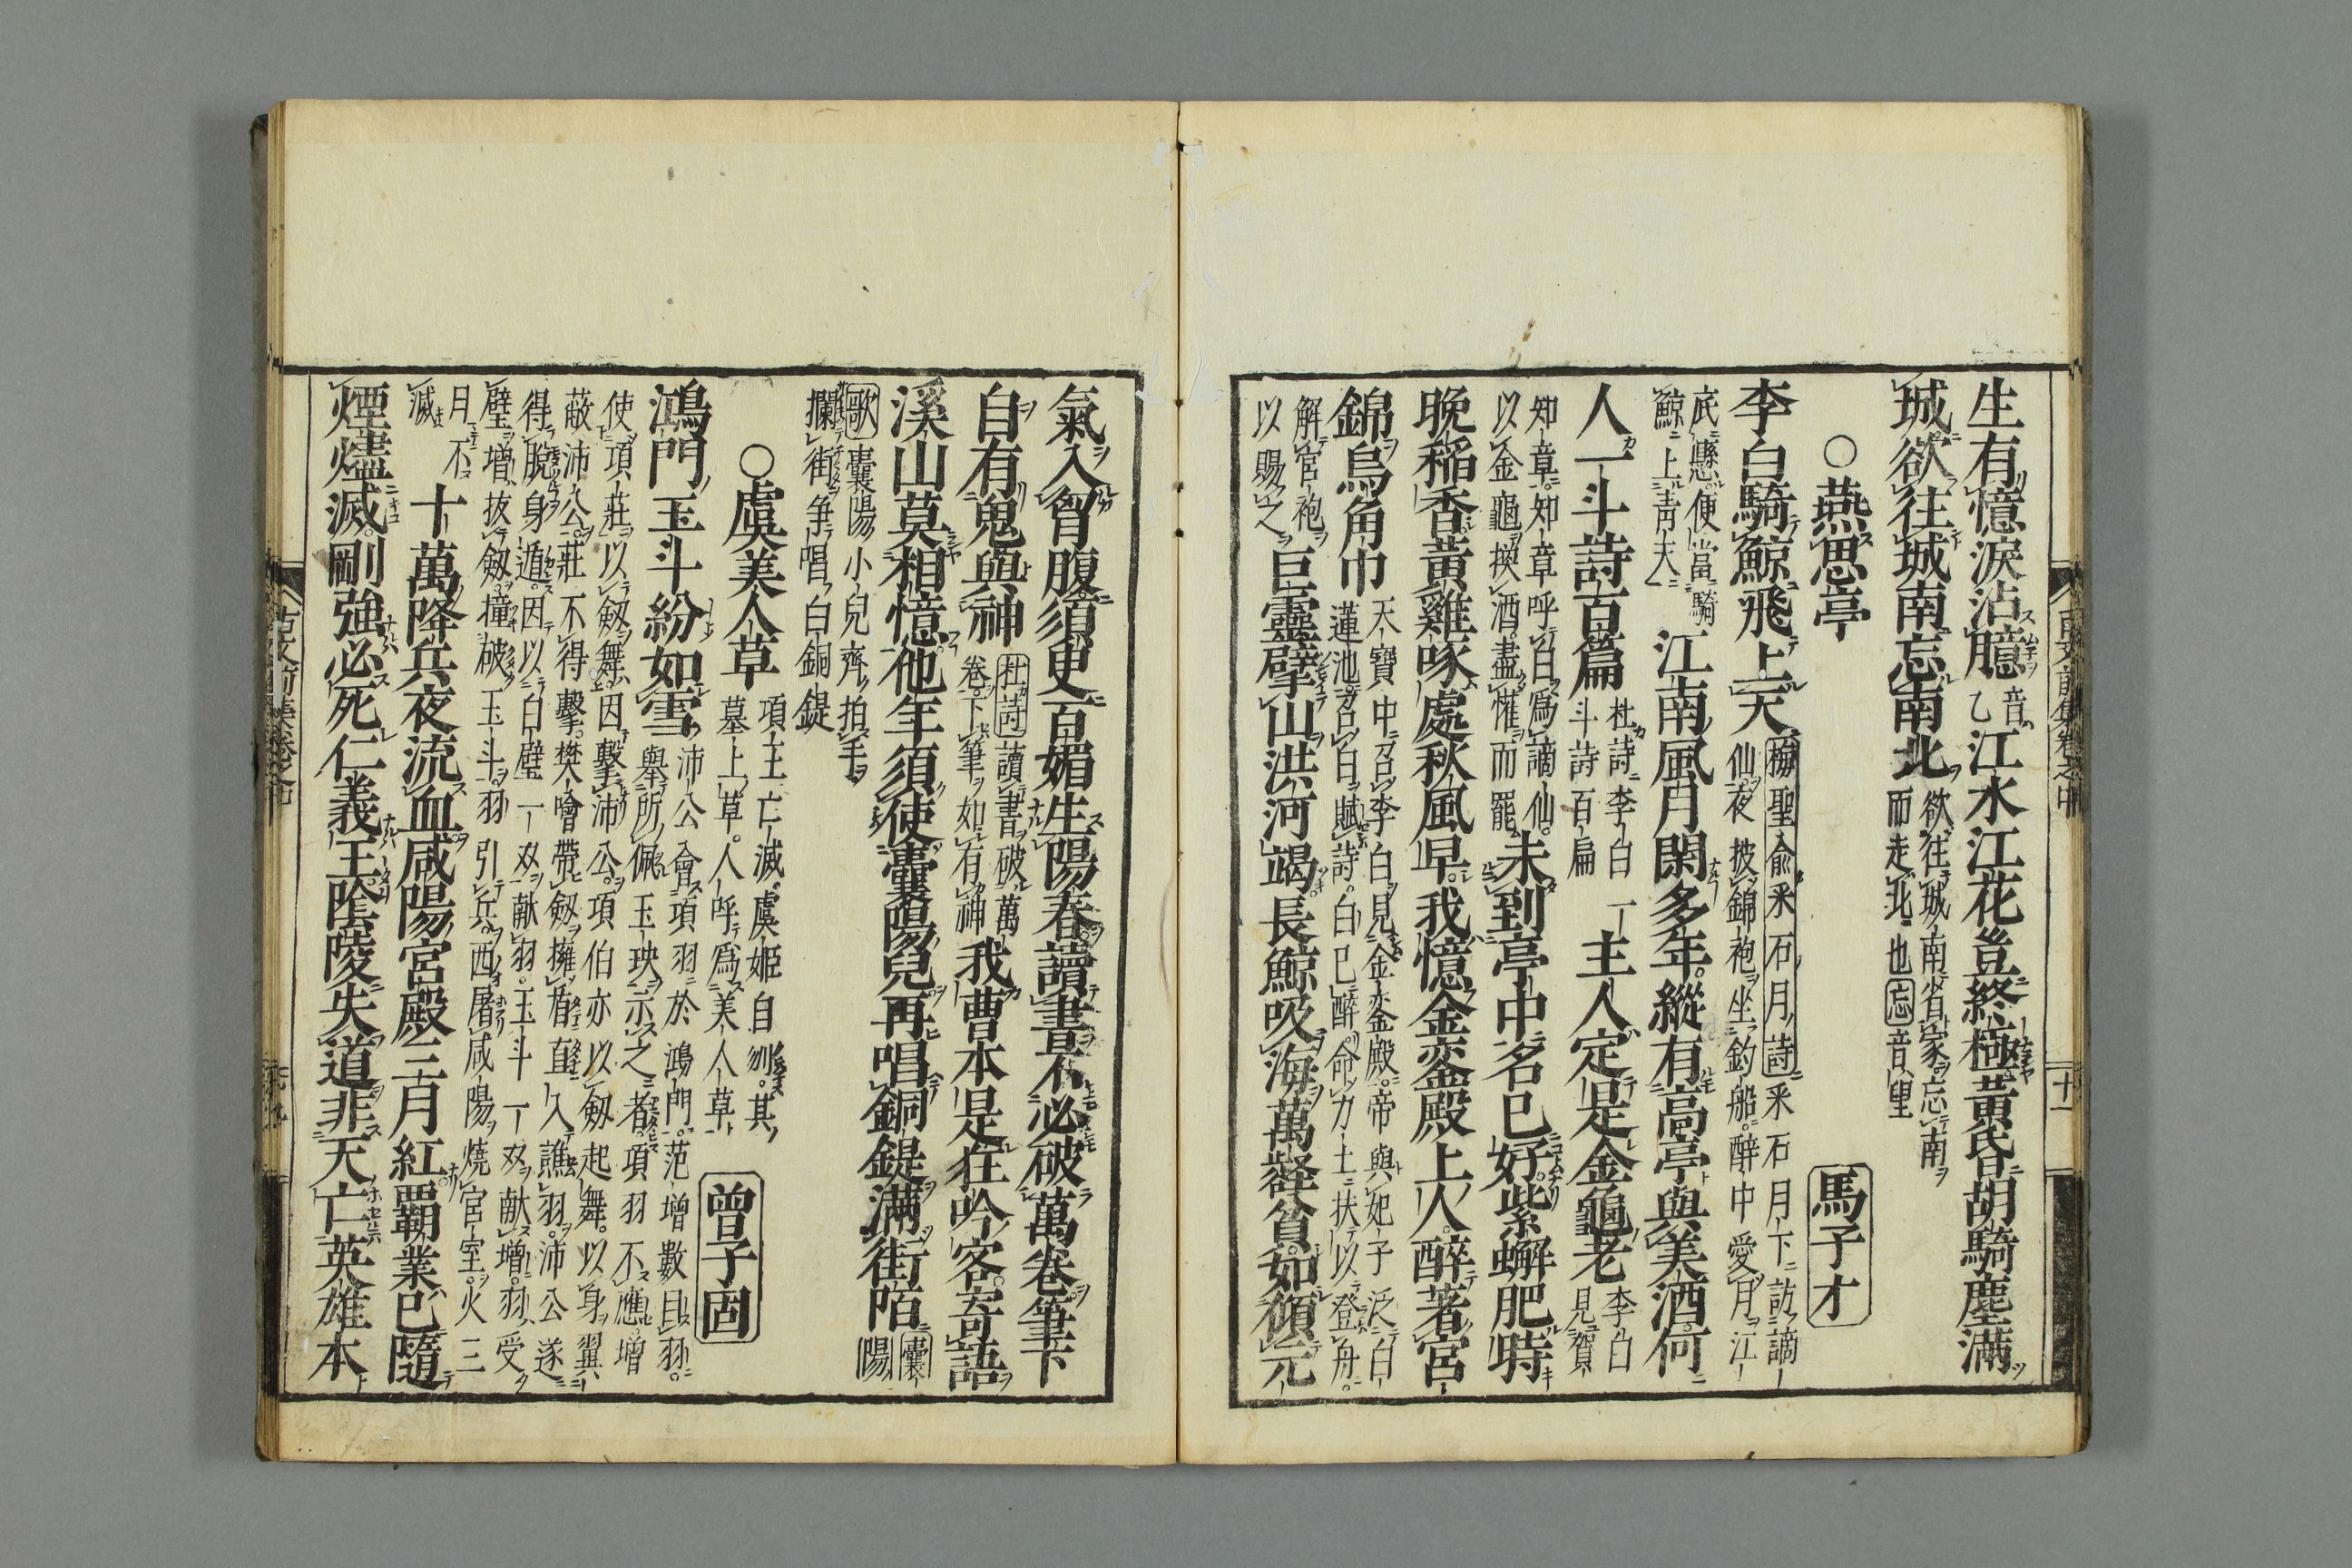 生有憶淚沾臆音乙江水江花豈終極黃昏胡騎塵滿
城欲往城南忘南北欲往城南省家忘南而走北也忘音望
○燕思亭 馬子才
李白騎鯨飛上天梅聖俞采石月詩采石月下訪謫仙夜披錦袍坐釣船醉中愛月江
底懸便當騎鯨上靑天江南風月閑多年縱有高亭與美酒何
人一斗詩百篇杜詩李白一斗詩百扁主人定是金龜老李白見賀
知章知章呼白爲謫仙以金龜換酒盡懽而罷未到亭中名已好紫蠏肥時
晚稻香黃雞啄處秋風早我憶金鑾殿上人醉著宮
錦烏角巾天寶中召李白見金鑾殿帝與妃子泛白蓮池召白賦詩白已醉命力士扶以登舟
解官袍以賜之巨靈擘山洪河竭長鯨吸海萬壑貧如傾元
氣入胷腹須臾百媚生陽春讀書不必破萬卷筆下
自有鬼與神杜詩讀書破萬卷下筆如有神我曹本是狂吟客寄語
溪山莫相憶他年須使囊陽兒再唱銅鍉滿街陌囊陽
歌囊陽小兒齊拍手攔街爭唱白銅鍉
○虞美人草項王亡滅虞姬自刎其墓上草人呼爲美人草 曾子固
鴻門玉斗紛如雪沛公會項羽於鴻門范增數目羽舉所佩玉玦示之者三項羽不應增
使項莊以劔舞因擊沛公項伯亦以劔起舞以身翼蔽沛公莊不得擊樊噲帶劔擁盾直入譙羽沛公遂
得脫身遁因以白璧一双献羽玉斗一双献增羽受璧增拔劔撞破玉斗羽引兵西屠咸陽燒宮室火三
月不滅十萬降兵夜流血咸陽宮殿三月紅覇業已隨
煙燼滅剛強必死仁義王陰陵失道非天亡英雄本